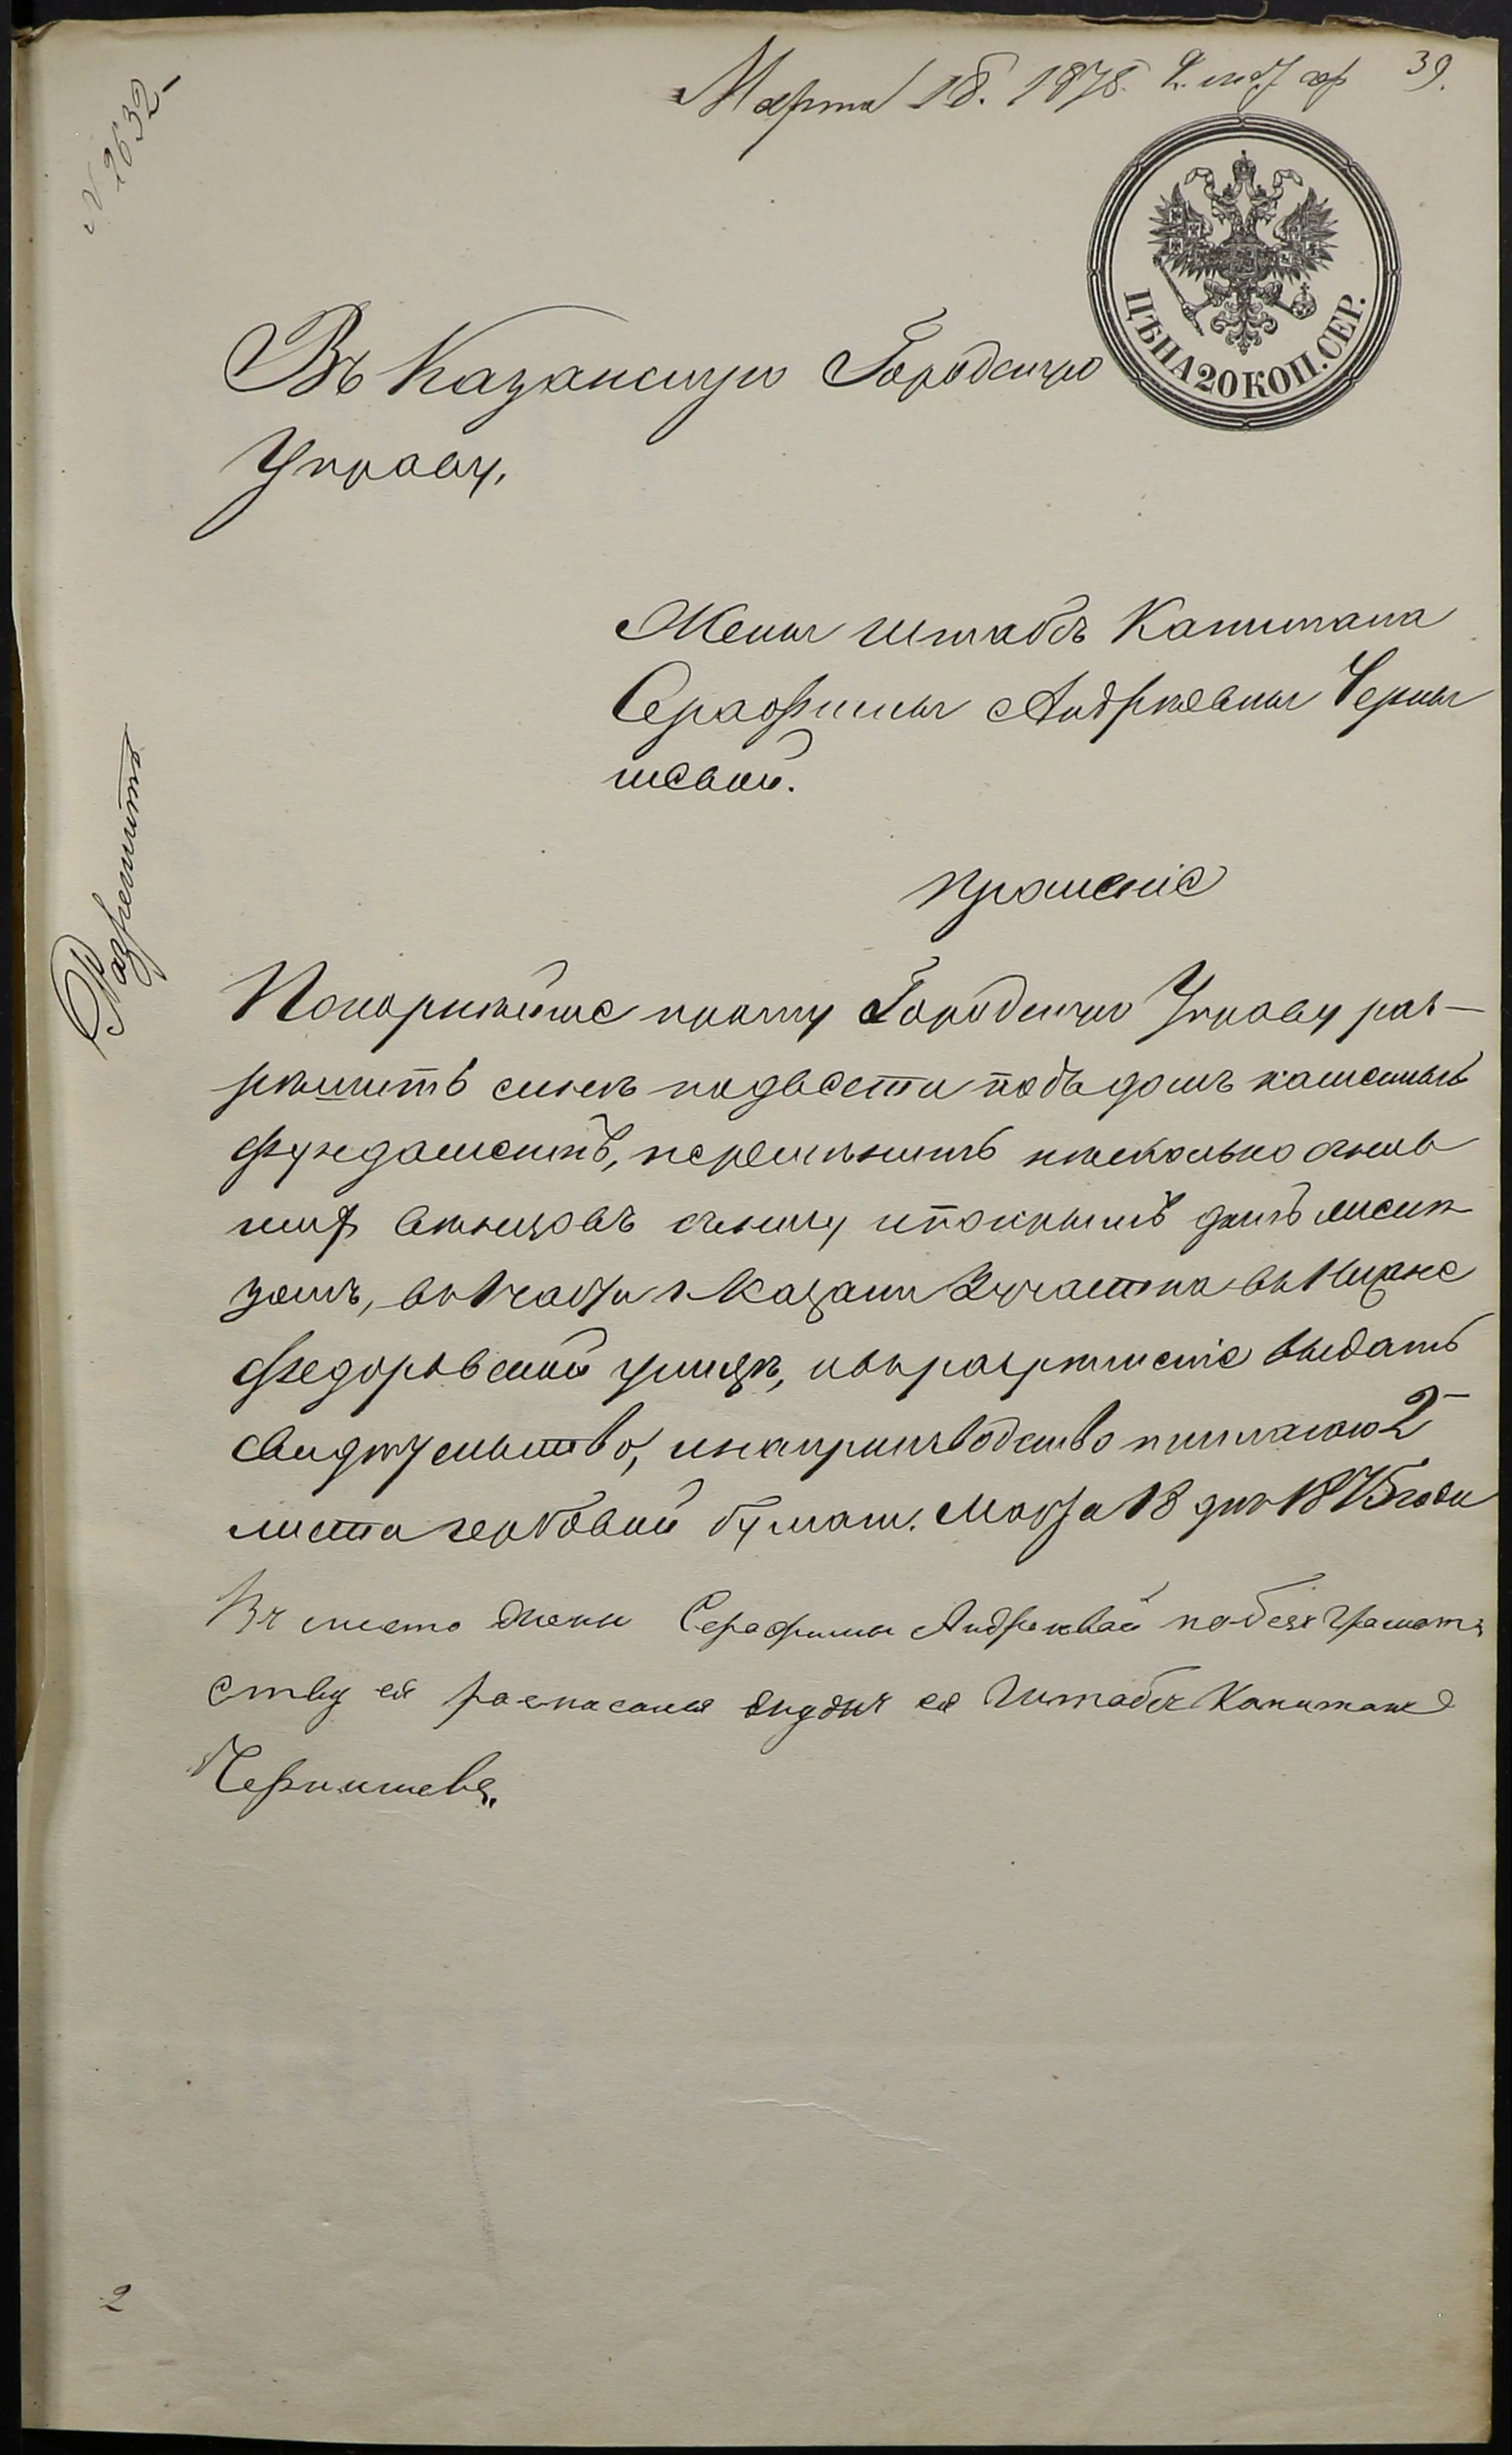 Марта 18. 1875. 2. 39.
N 2632
ЦѢНА 20 КОП. СЕР.
Въ Казанскую Городскую
Управу,
Жены штабсъ Капитана
Серафимы Андреевны Черны
шевой.
прошеніе
Разрешить
Покорнѣйше прошу Городскую Управу раз-
рѣшить мнѣ подвести подъ домъ каменный
фундаментъ, перемѣнить нѣсколько
вѣнцовъ снизу и покрыть домъ
зомъ, въ 1 части г. Казани 2 участка въ Нижне
федоровской улицѣ, и на разрѣшеніе выдать
свидѣтельство, и на производство прилагаю 2
листа гербовой бумаги. Марта 18 дня 1875 года
Въ место жены Серафимы Андревной по без грамот
ству ея росписался мужъ ея Штабсъ Капитанъ
Чернышевъ.
2